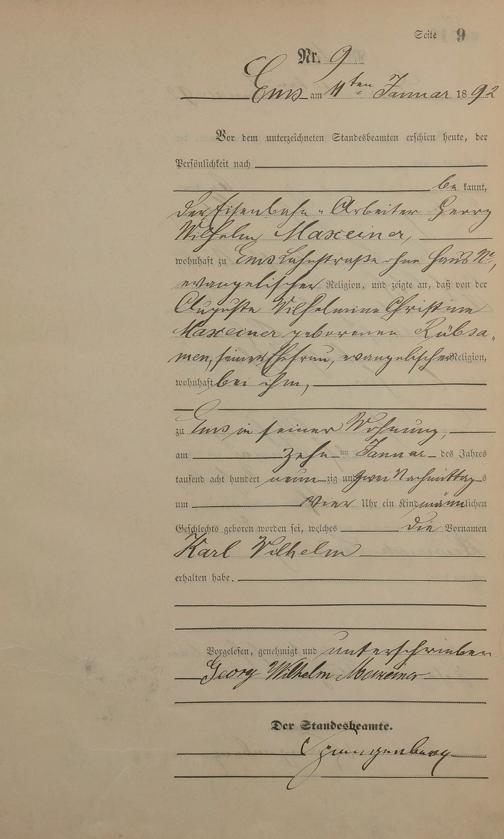 Seite 9
Nr. 9
Ems am 11ten Januar 1892
Vor dem unterzeichneten Standesbeamten erschien heute, der
Persönlichkeit nach
be kannt,
der Eisenbahn-Arbeiter Georg
Wilhelm Maxeiner,
wohnhaft zu Ems Lahnstraße ohne Haus Nr,
evangelischer Religion, und zeigte an, daß von der
Auguste Wilhelmine Christine
Maxeiner geborenen Rübsa-
men, seiner Ehefrau, evangelischer Religion,
wohnhaft bei ihm,
zu Ems in seiner Wohnung,
am zehn ten Januar des Jahres
tausend acht hundert neun zig und zwei Nachmittags
um vier Uhr ein Kind männlichen
Geschlechts geboren worden sei, welches die Vornamen
Karl Wilhelm
erhalten habe.
Vorgelesen, genehmigt und unterschrieben
Georg Wilhelm Maxeiner
Der Standesbeamte.
Spangenberg